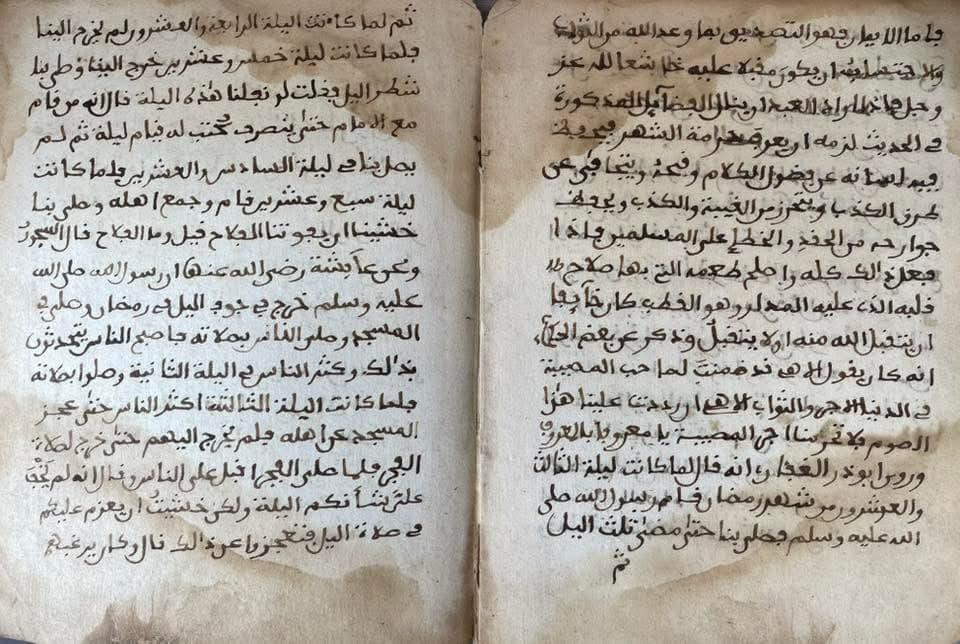 فاما الايمان فهو التصديق بما وعد الله من الثواب
والاحتساب ان يكون مقبلا عليه خاشعا لله عز
وجل فاذا اراد العبد ان ينال الفضائل المذكورة
في الحديث لزمه ان يعرف حرمة الشهر فيحفظ
فيه لسانه عن فضول الكلام و ويتجافى عن
طرق الكذب ويتحرز من الغيبة والكذب ويحفظ
جوارحه من والخطإ على المسلمين فاذا
فعل ذالك كله واصلح طعمه التي بها صلاح
قلبه الذي عليه المدار وهو القطب كان خآيفا
ان يتقبل الله منه او لا يتقبل وذكر عن بعض
انه كان يقول الاهي قد ضمنت لصاحب المصيبة
في الدنيا الاجر والثواب الاهي ان رددت علينا هذا
الصوم فلا تحرمنا اجر المصيبة يا معروفا بالمعروف
وروى ابو ذر الغفاري انه قال لما كانت ليلة الثالث
والعشرون من شهر رمضان قام رسول الله صلى
الله عليه وسلم فصلى بنا حتى مضى ثلث اليل
ثم
ثم لما كانت اليلة الرابعة والعشرون لم يخرج الينا
فلما كانت ليلة خمس وعشرين خرج الينا وصلى بنا
شطر اليل فقلت لو نفلنا هذه اليلة قال انه من قام
مع الامام حتى ينصرف كتب له قيام ليلة ثم لم
يصل بنا في ليلة السادس والعشرين فلما كانت
ليلة سبع وعشرين قام وجمع اهله وصلى بنا
خشينا ان يفوتنا الفلاح قيل وما الفلاح قال السحور
وعن عآيشة رضي الله عنها ان رسول الله صلى الله
عليه وسلم خرج في جوف اليل في رمضان وصلى في
المسجد وصلى الناس بصلاته فاصبح الناس يتحدثون
بذالك وكثر الناس في اليلة الثانية وصلوا بصلاته
فلما كانت اليلة الثالثة اكثر الناس حتى عجز
المسجد عن اهله فلم يخرج اليهم حتى خرج لصلاة
الفجر فلما صلى الفجر اقبل على الناس وقال انه لم يخف
على شأنكم اليلة ولكن خشيت ان يعزم عليكم
في صلاة اليل فتعجزوا عن ذالك قال وكان يرغبهم